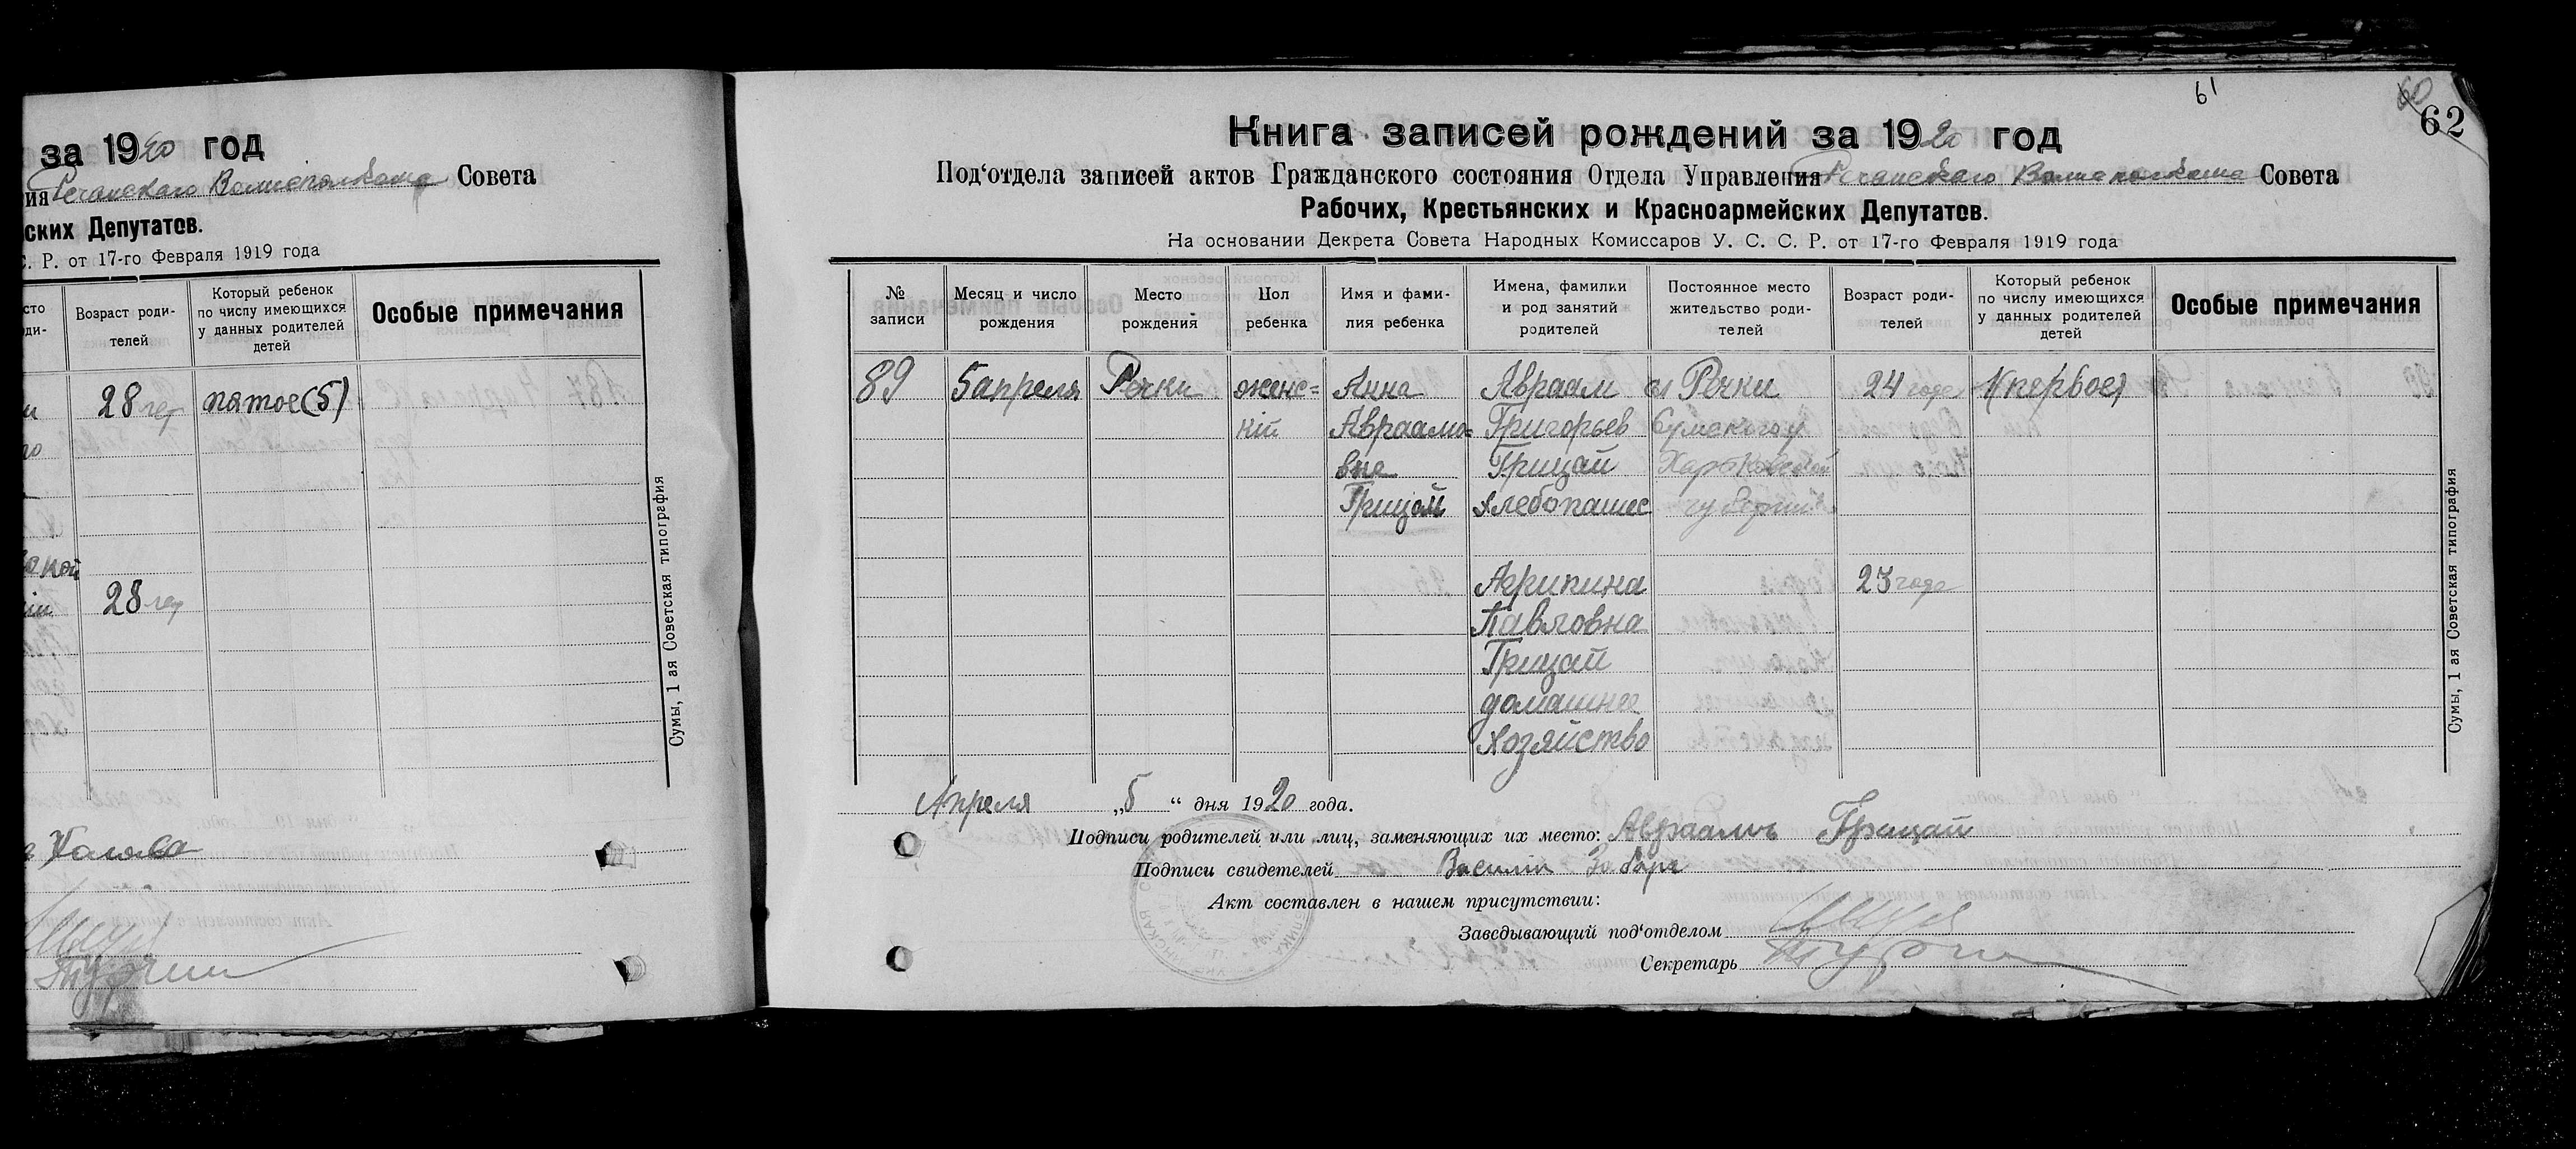 за 1920 год
Речанскаго Волисполкома Совета
ских Депутатов.
С. Р. от 17-го Февраля 1919 года
Возраст роди-
телей
Который ребенок
по числу имеющихся
у данных родителей
детей
Особые примечания
28 лет пятое (5)
28 лет
Сумы, 1 ая Советская типография
61
60
62
Книга записей рождений за 1920 год
Под‘отдела записей актов Гражданского состояния Отдела Управления Речанскаго Волисполкома Совета
Рабочих, Крестьянских и Красноармейских Депутатов.
На основании Декрета Совета Народных Комиссаров У. С. С. Р. от 17-го Февраля 1919 года
№
записи
Месяц и число
рождения
Место
рождения
Пол
ребенка
Имя и фами-
лия ребенка
Имена, фамилии
и род занятий
родителей
Постоянное место
жительство роди-
телей
Возраст роди-
телей
Который ребенок
по числу имеющихся
у данных родителей
детей
Особые примечания
89 5 апреля Речки женс= Анна Авраам сл Речки 24 года 1(первое)
кій Авраамо= Григорьев Сумского у
вна Грицай Харьковской
Грицай хлебопашес губернии
Агрипина 23 года
Павловна
Грицай
домашнее
хозяйство
Апреля „5“ дня 1920 года.
Подписи родителей или лиц, заменяющих их место: Авраамъ Грицай
Подписи свидетелей Василій
Акт составлен в нашем присутствии:
Заведывающий под‘отделом
Секретарь
Сумы, 1 ая Советская типография